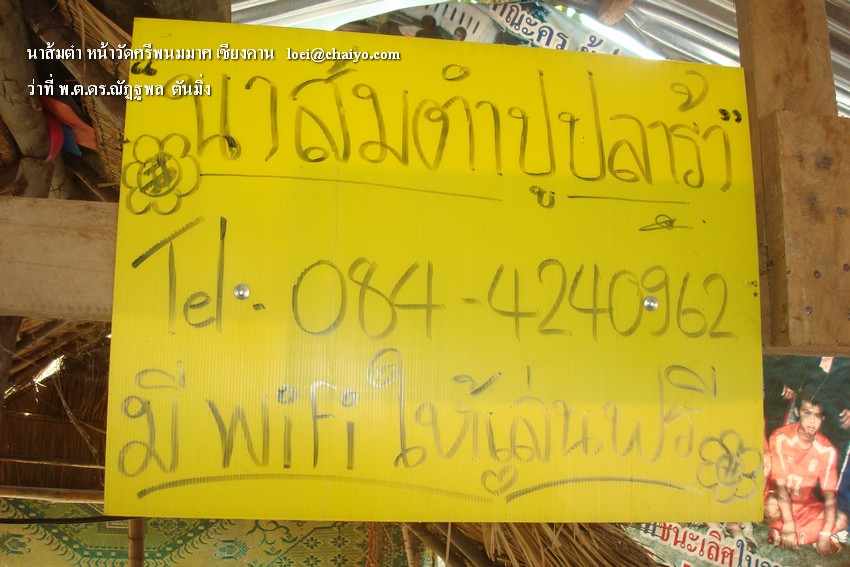 นาส้มตำ หน้าวัดศรีพนมมาศ เชียงคาน loei@chaiyo.com
ว่าที่ พ.ต.ดร.ณัฏฐพล ตันมิ่ง
"นาส้มตำปูปลาร้า"
Tel. 084-4240962
มี wifi ให้เล่นฟรี
ชนะเลิศ